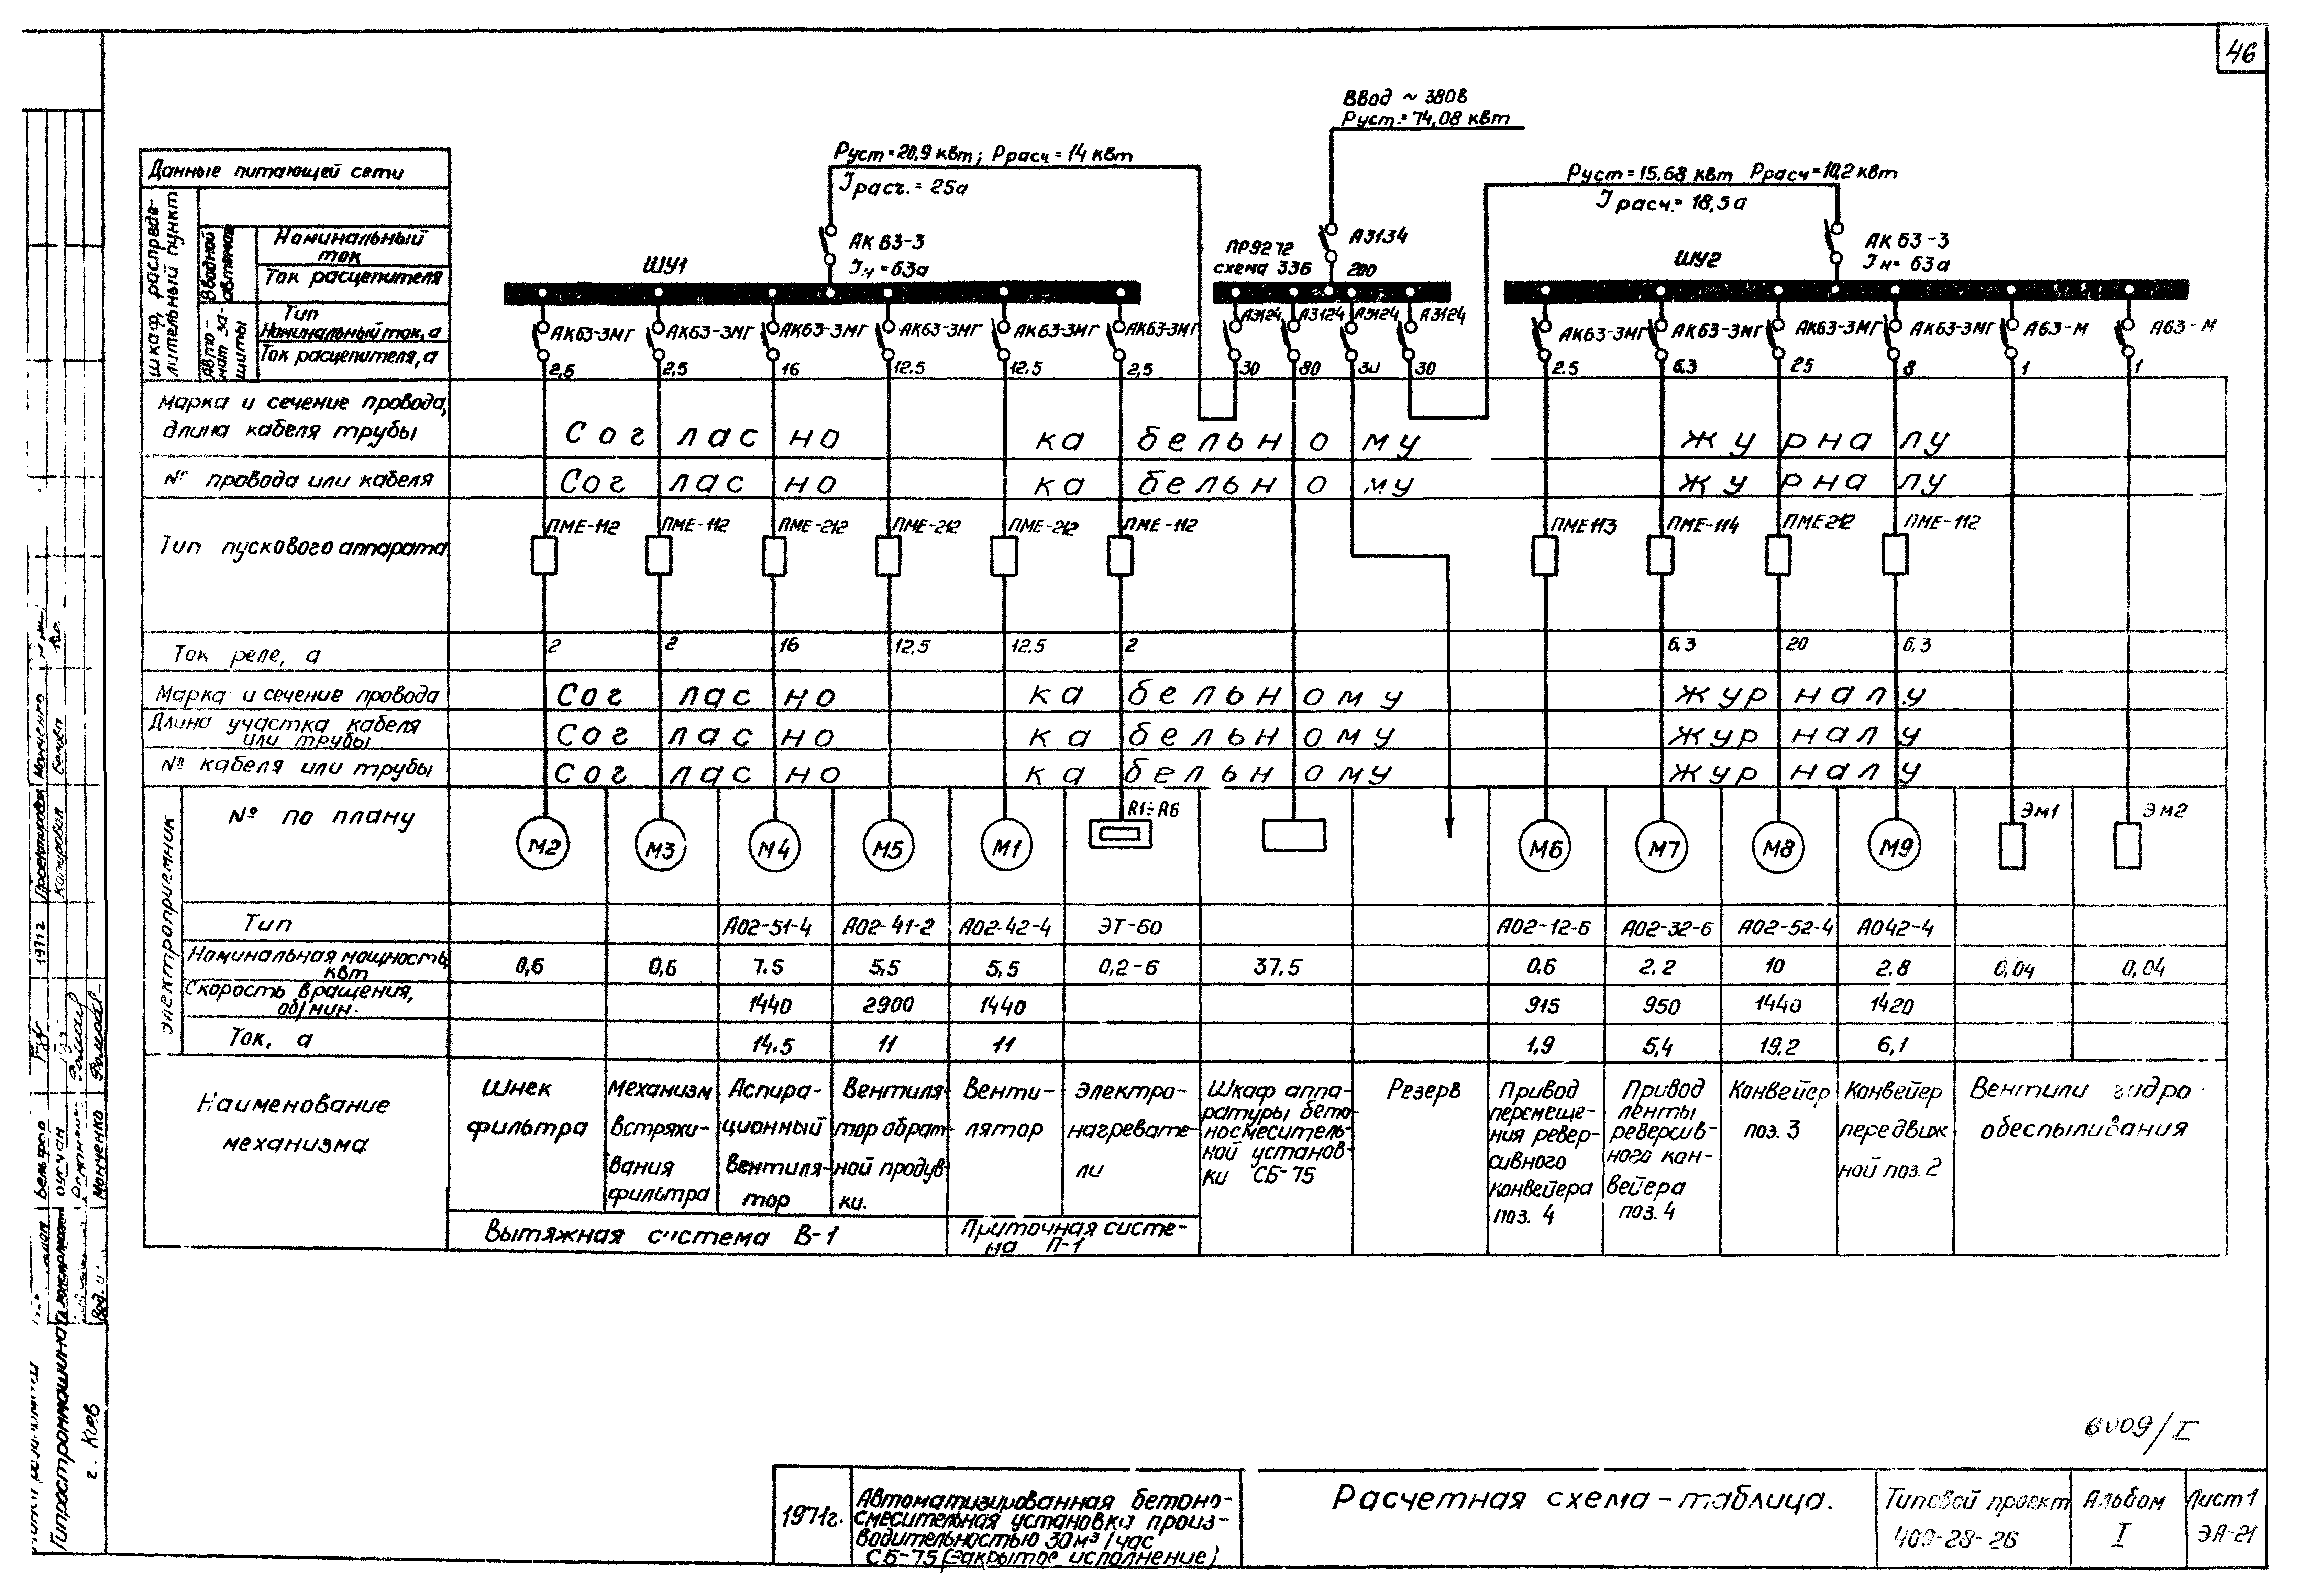 46
Ввод ~ 380в
Руст.=74,08 квт
Руст=20,9 квт; Ррасч=14 квт
Iрасч.=25а
Руст=15.68 квт Ррасч=10,2 квт
Iрасч.=18,5а
Данные питающей сети
Шкаф, распреде-
лительный пункт
Вводной
автомат
Номинальный
ток
Ток расцепителя
Авто-
мат за-
щиты
Тип
Номинальный ток, а
Ток расцепителя, а
ШУ1
АК63-3
Iн=63а
ПР9272
схема 33б
А3134
200
ШУ2
АК63-3
Iн=63а
АК63-3МГ АК63-3МГ АК63-3МГ АК63-3МГ АК63-3МГ АК63-3МГ А3124 А3124 А3124 А3124 АК63-3МГ АК63-3МГ АК63-3МГ АК63-3МГ А63-М А63-М
2,5 2,5 16 12.5 12.5 2,5 30 80 30 30 2.5 6.3 25 8 1 1
Марка и сечение провода,
длина кабеля трубы
Согласно кабельному журналу
№ провода или кабеля Согласно кабельному журналу
Тип пускового аппарата
ПМЕ-112 ПМЕ-112 ПМЕ-212 ПМЕ-212 ПМЕ-212 ПМЕ-112 ПМЕ113 ПМЕ-114 ПМЕ212 ПМЕ-112
Ток реле, а 2 2 16 12,5 12.5 2 6.3 20 6.3
Марка и сечение провода Согласно кабельному журналу
Длина участка кабеля
или трубы
Согласно кабельному журналу
№ кабеля или трубы Согласно кабельному журналу
Электроприемник
№ по плану
М2 М3 М4 М5 М1 R1÷R6 М6 М7 М8 М9 ЭМ1 ЭМ2
Тип А02-51-4 А02-41-2 А02-42-4 ЭТ-60 А02-12-6 А02-32-6 А02-52-4 А042-4
Номинальная мощность,
квт
0,6 0,6 7.5 5,5 5,5 0,2-6 37.5 0.6 2.2 10 2.8 0,04 0,04
Скорость вращения,
об/мин.
1440 2900 1440 915 950 1440 1420
Ток, а 14.5 11 11 1,9 5,4 19.2 6,1
Наименование
механизма
Шнек
фильтра
Механизм
встряхи-
вания
фильтра
Аспира-
ционный
вентиля-
тор
Вентиля-
тор обрат-
ной продув-
ки.
Венти-
лятор
Электро-
нагревате-
ли
Шкаф аппа-
ратуры бето-
носмеситель-
ной установ-
ки СБ-75
Резерв
Привод
перемеще-
ния ревер-
сивного
конвейера
поз. 4
Привод
ленты
реверсив-
ного кон-
вейера
поз. 4
Конвейер
поз. 3
Конвейер
передвиж
ной поз. 2
Вентили гидро-
обеспыливания
Вытяжная система В-1
Приточная систе-
ма П-1
6009/I
1971г.
Автоматизированная бетоно-
смесительная установка произ-
водительностью 30м³/час
СБ-75 (закрытое исполнение)
Расчетная схема-таблица.
Типовой проект
409-28-26
Альбом
I
Лист1
ЭА-21
Гипростроммашина
г. Киев
1971г
Проектировал
Копировал
Монченко